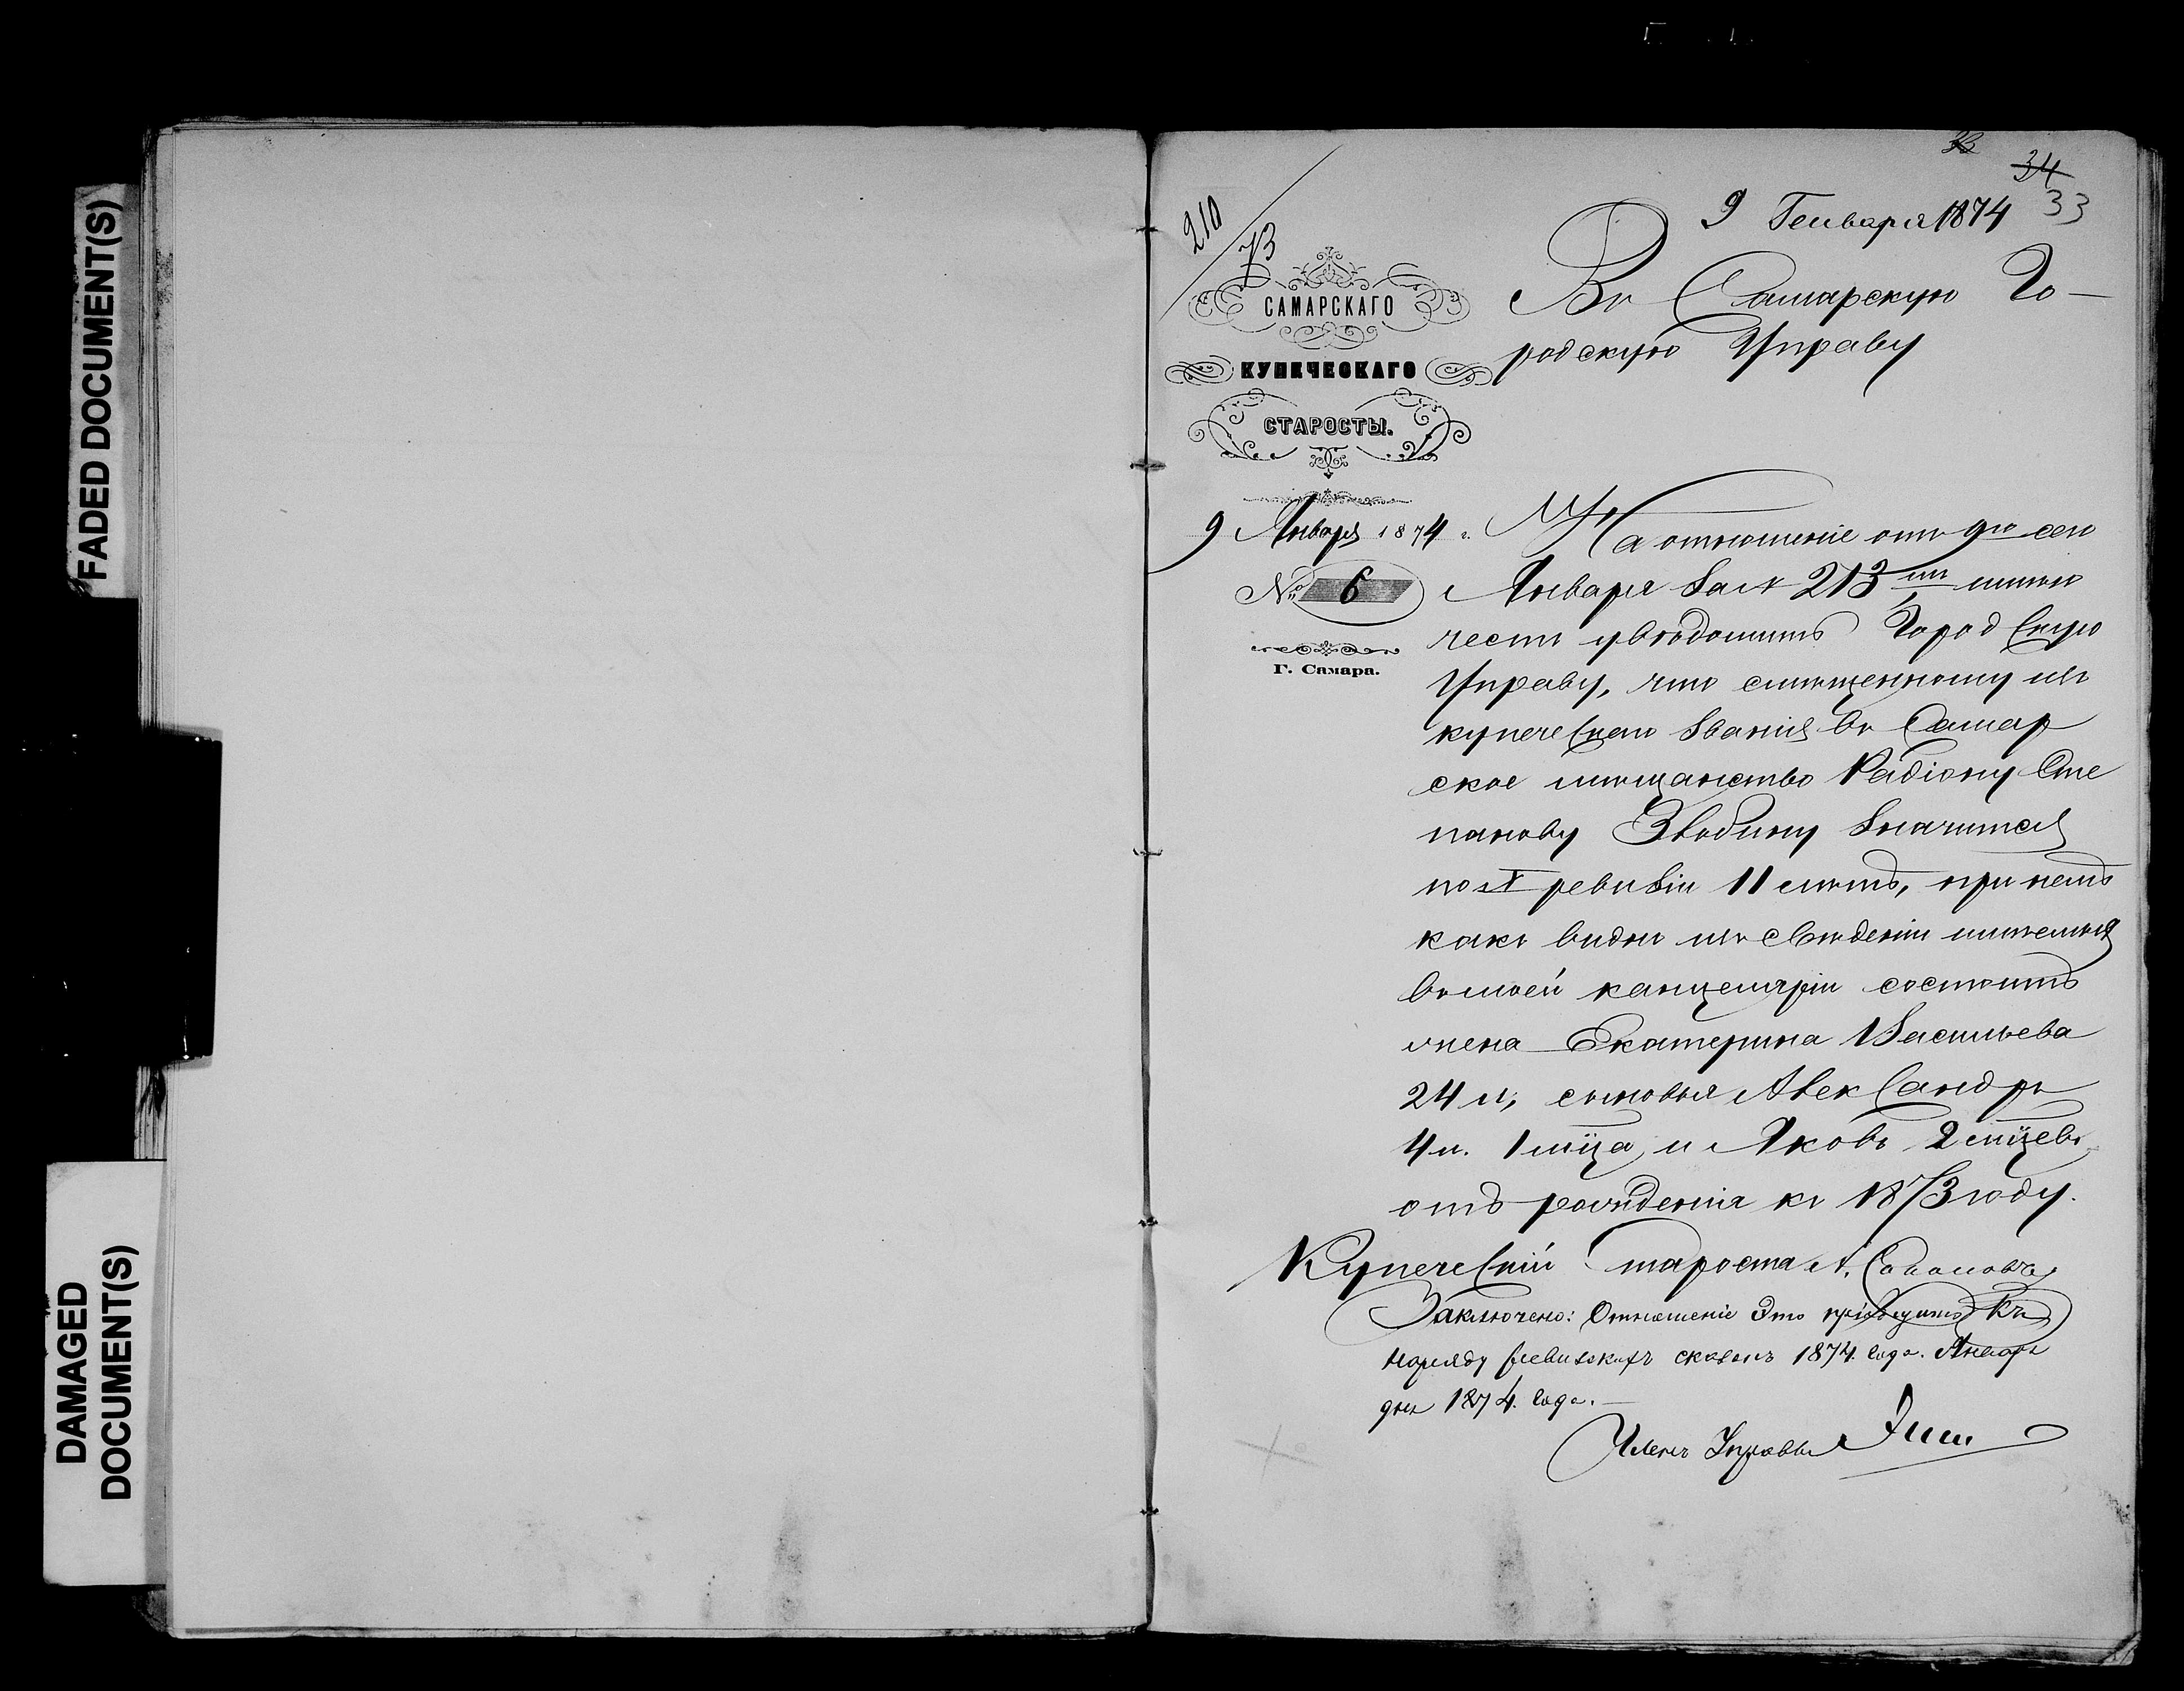 FADED DOCUMENT(S)
DAMAGED
DOCUMENT(S)
33
34
33
210
73
9 Генваря 1874
САМАРСКАГО
КУПЕЧЕСКАГО
СТАРОСТЫ.
9 Января 1874 г.
№ 6
Г. Самара.
Въ Самарскую Го-
родскую Управу
На отношеніе отъ 9го сего
Января за № 213 имѣю
честь увѣдомить Городскую
Управу, что счисленному изъ
купеческаго званія въ Самар
ское мѣщанство Радіону Сте
панову Зводину значится
по X ревизіи 11 лѣтъ, при немъ
какъ видно изъ свѣденіи имѣемыя
въ моей канцеляріи состоитъ
жена Екатерина Васильева
24 л, сыновья Александръ
4 л. 1 мца, и Яковъ 2 мцевъ
отъ рожденія къ 1873 году.
Купеческій Староста А. Соколовъ
Заключено: Отношеніе это пріобщить къ
наряду ревизскихъ сказокъ 1874 года. Январь
дня 1874 года.
Членъ Управы